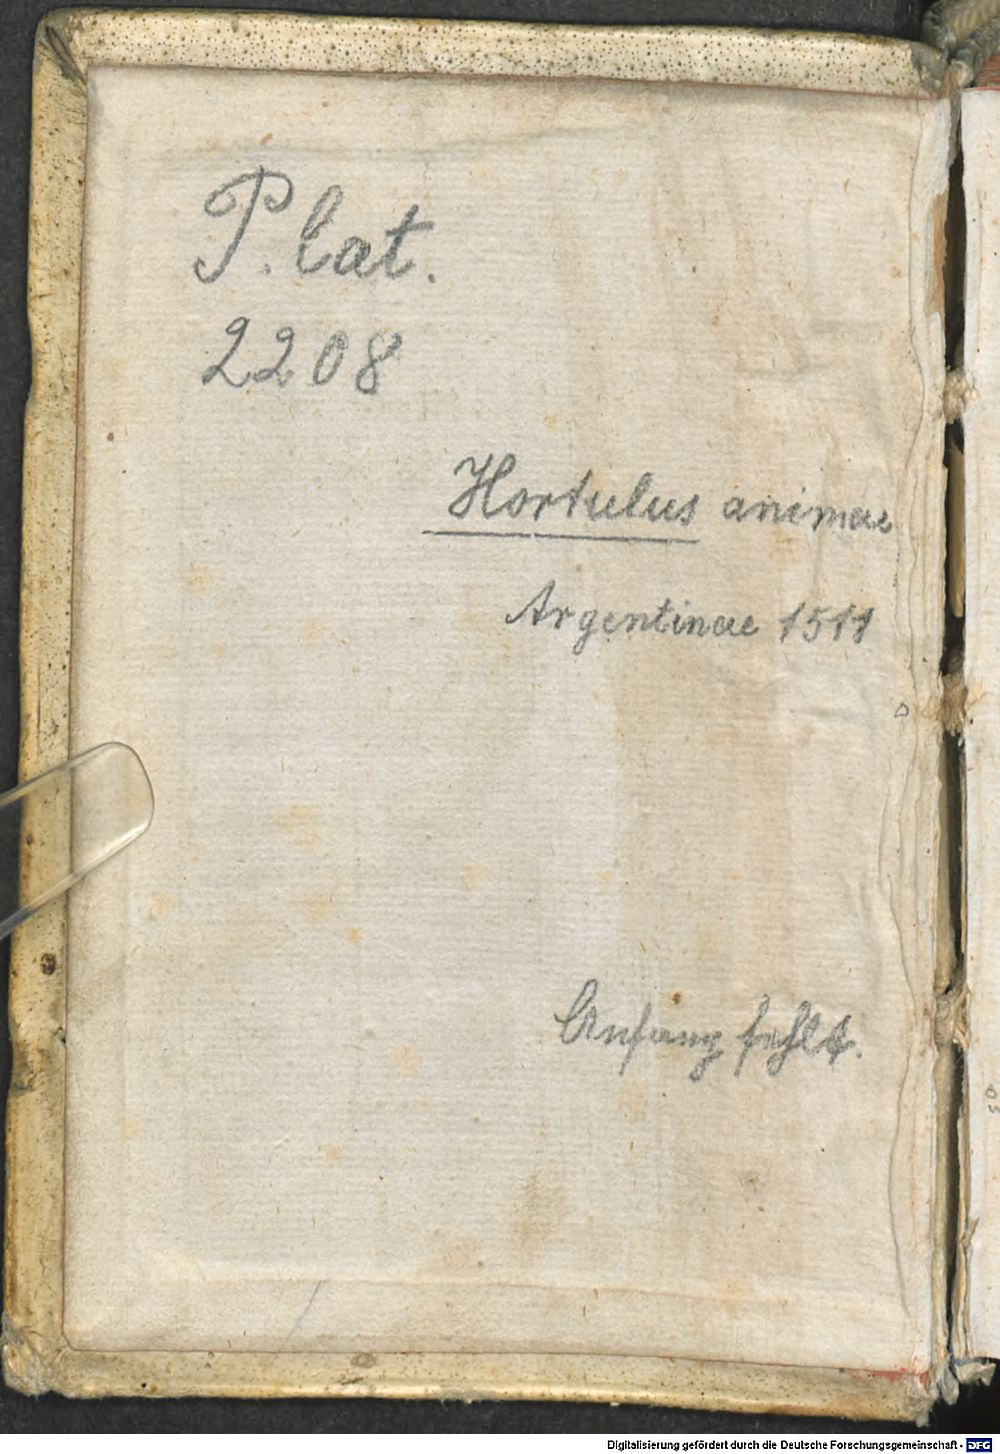 P. lat.
2208
Hortulus animae
Argentinae 1511
Anfang fehlt.
Digitalisierung gefördert durch die Deutsche Forschungsgemeinschaft - DFG